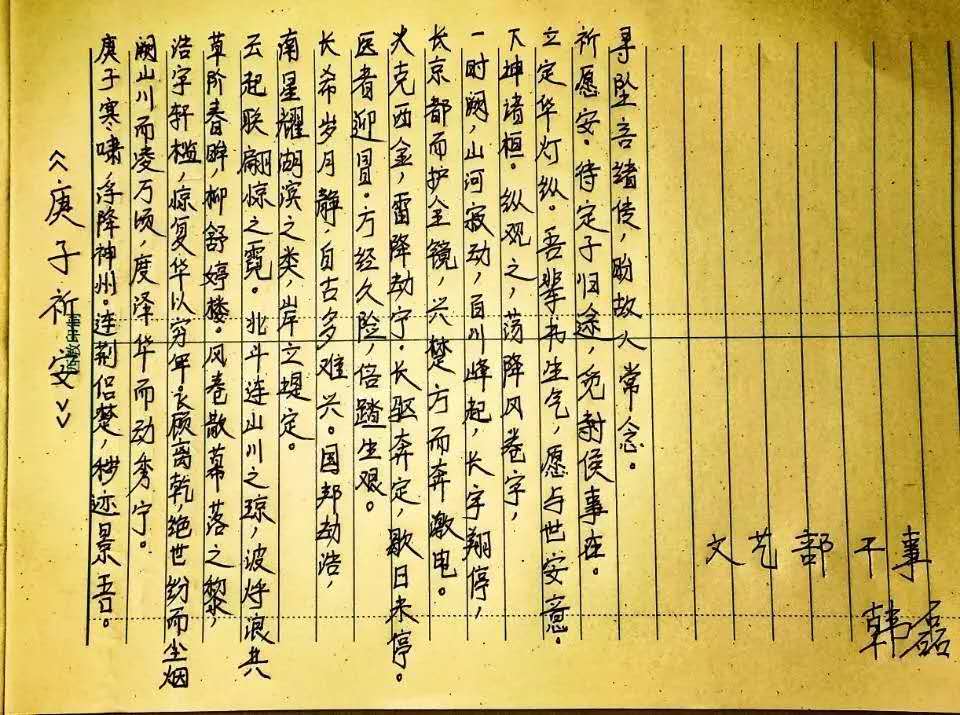 《庚子祈安》
庚子寒啸,浮降神州。连荆侣楚,秽迹景吾。
阙山川而凌万顷,度泽华而动秀宁。
浩字轩槛,惊复华以穷年。衣顾离乾,绝世纷而尘烟
草阶春眸,柳舒婷楼。风卷散幕落之黎,
云起联翩惊之霓。北斗连山川之琼,波烀浪共
南星耀湖滨之类,岸立堤定。
长希岁月静,自古多难兴。国邦劫浩,
医者迎冒。方经久险,倍踏生艰。
火克西金,雷降劫宁。长驱奔定,歇日未停。
长京都而护全镜,兴楚方而奔激电。
一时阙,山河寂动,百川峰起,长宇翔停,
下坤诸桓。纵观之,荡降风卷字,
立定华灯纵。吾辈书生气,愿与世安意。
祈愿安。待定子归途,免封侯事在。
寻坠吾绪传,盼故人常念。
文艺部干事
韩磊